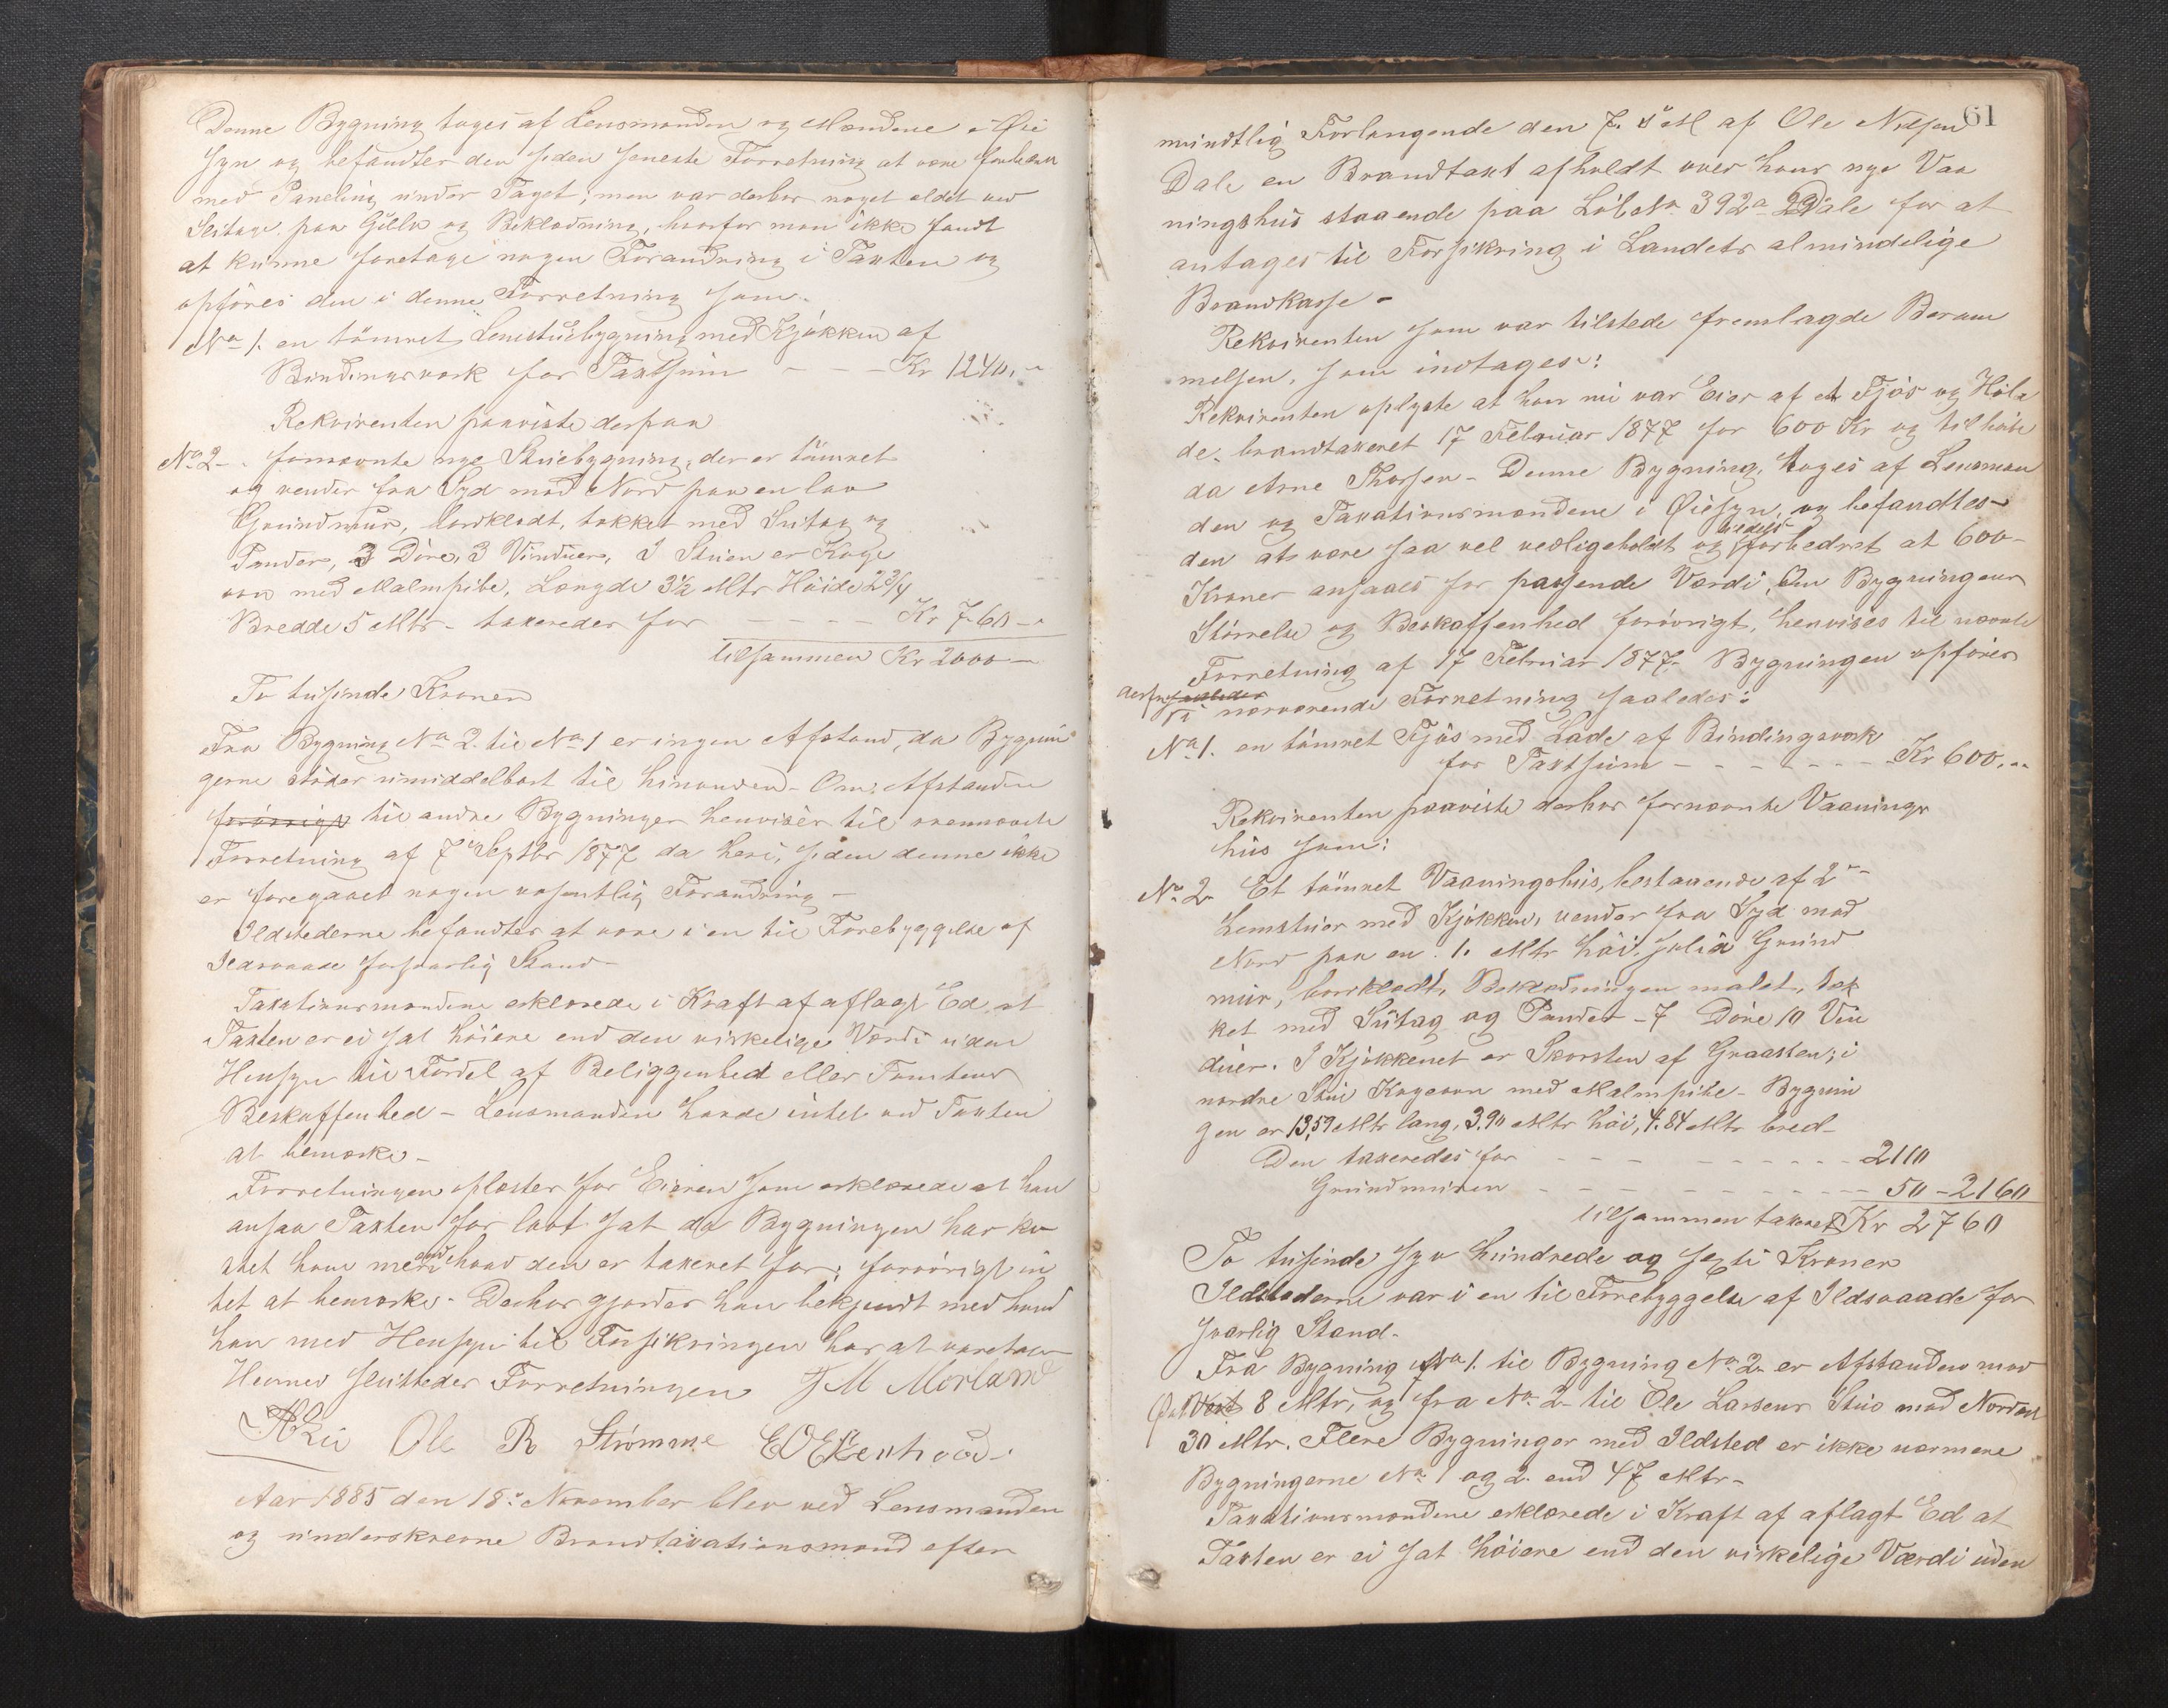 Denne Bygning toges af Lensmanden og Mændene i Øie
syn og befandtes den siden seneste Forretning at være forbedret
med Paneling under Taget; men var derhos noget ældet ved
Slitage paa Gulve og Beklædning, hvorfor man ikke fandt
at kunne foretage nogen Forandring i Taxten og
opføres den i denne Forretning som
No 1. en tømret Lemstuebygning med Kjøkken af
Bindingsværk for Taxtsum - - - Kr 1240,-
Rekvirenten paaviste derpaa
No 2 - fornævnte nye Stuebygning, der er tømret
og vender fra Syd mod Nord paa en lav
Grundmur, bordklædt, tækket med Sutag og
Pander, 3 Døre, 3 Vinduer, I Stuen er Koge
ovn med Malmpibe, Længde 3½ Mtr Høide 2¾
Bredde 5 Mtr - taxeredes for - - - - Kr 760 -
tilsammen Kr 2000 -
To tusinde Kroner
Fra Bygning No 2. til No 1 er ingen Afstand, da Bygnin
gerne støder umiddelbart til hinanden - Om Afstanden
forøvrigt til andre Bygninger henvises til ovennævnte
Forretning af 7 Septbr 1877 da heri, siden denne ikke
er foregaaet nogen væsentlig Forandring -
Ildstederne befandtes at være i en til Forebyggelse af
Ildsvaade forsvarlig Stand -
Taxationsmændene erklærede i Kraft af aflagt Ed, at
Taxten er ei sat høiere end den virkelige Værdi uden
Hensyn til Fordel af Beliggenhed eller Tomtens
Beskaffenhed - Lensmanden havde intet ved Taxten
at bemærke -
Forretningen oplæstes for Eieren som erklærede at han
ansaa Taxten for lavt sat da Bygningen har ko
stet ham mere end hvad den er taxeret for; forøvrigt in
tet at bemærke. Derhos gjordes han bekjendt med hvad
han med Hensyn til Forsikringen har at varetage
Hermed sluttedes Forretningen J M Morland
Ole R Strømme
Aar 1885 den 18de November blev ved Lensmanden
og underskrevne Brandtaxationsmænd efter
61
mundtlig Forlangende den 7. s Ml af Ole Nilsen
Dale en Brandtaxt afholdt over hans nye Vaa
ningshus staaende paa Løbeno 392a Dale for at
antages til Forsikring i Landets almindelige
Brandkasse -
Rekvirenten som var tilstede fremlagde Beram
melsen, som indtages:
Rekvirenten oplyste at han nu var Eier af et Fjøs og Høla
de, brandtaxeret 17 Februar 1877 for 600 Kr og tilhørte
da Arne Thorsen - Denne Bygning, toges af Lensman
den og Taxationsmændene i Øiesyn, og befandtes
den at være saa vel vedligeholdt og tildels forbedret at 600 -
Kroner ansaaes for passende Værdi, Om Bygningens
Størrelse og Beskaffenhed forøvrigt, henvises til nævnte
Forretning af 17 Februar 1877. Bygningen opføres
i nærværende Forretning saaledes:
No 1. en tømret Fjøs med Lade af Bindingsværk
for Taxtsum - - - - - - - Kr 600,-
Rekvirenten paaviste derhos fornævnte Vaanings
hus som:
No 2 Et tømret Vaaningshus, bestaaende af 2 -
Lemstuer med Kjøkken, vender fra Syd mod
Nord paa en 1. Mtr høi, solid Grund
mur, bordklædt, Beklædningen malet, tæk
ket med Sutag og Pander - 7 Døre 10 Vin
duer. I Kjøkkenet er Skorsten af Graasten; i
nordre Stue Kogeovn med Malmpibe - Bygnin
gen er 13,59 Mtr lang, 3.90 Mtr høi, 4.84 Mtr bred -
Den taxeredes for - - - - - - - - - 2110
Grundmuren - - - - - - - - - 50 - 2160
tilsammen taxeret Kr 2760
To tusinde syv hundrede og sexti Kroner
Ildstederne var i en til Forebyggelse af Ildsvaade for
svarlig Stand -
Fra Bygning No 1. til Bygning No 2 er Afstanden mod
Øst Vest 8 Mtr, og fra No 2 til Ole Larsens Stue mod Nordost
30 Mtr. Flere Bygninger med Ildsted er ikke nærmere
Bygningerne No 1 og 2 end 47 Mtr -
Taxationsmændene erklærede i Kraft af aflagt Ed at
Taxten er ei sat høiere end den virkelige Værdi uden